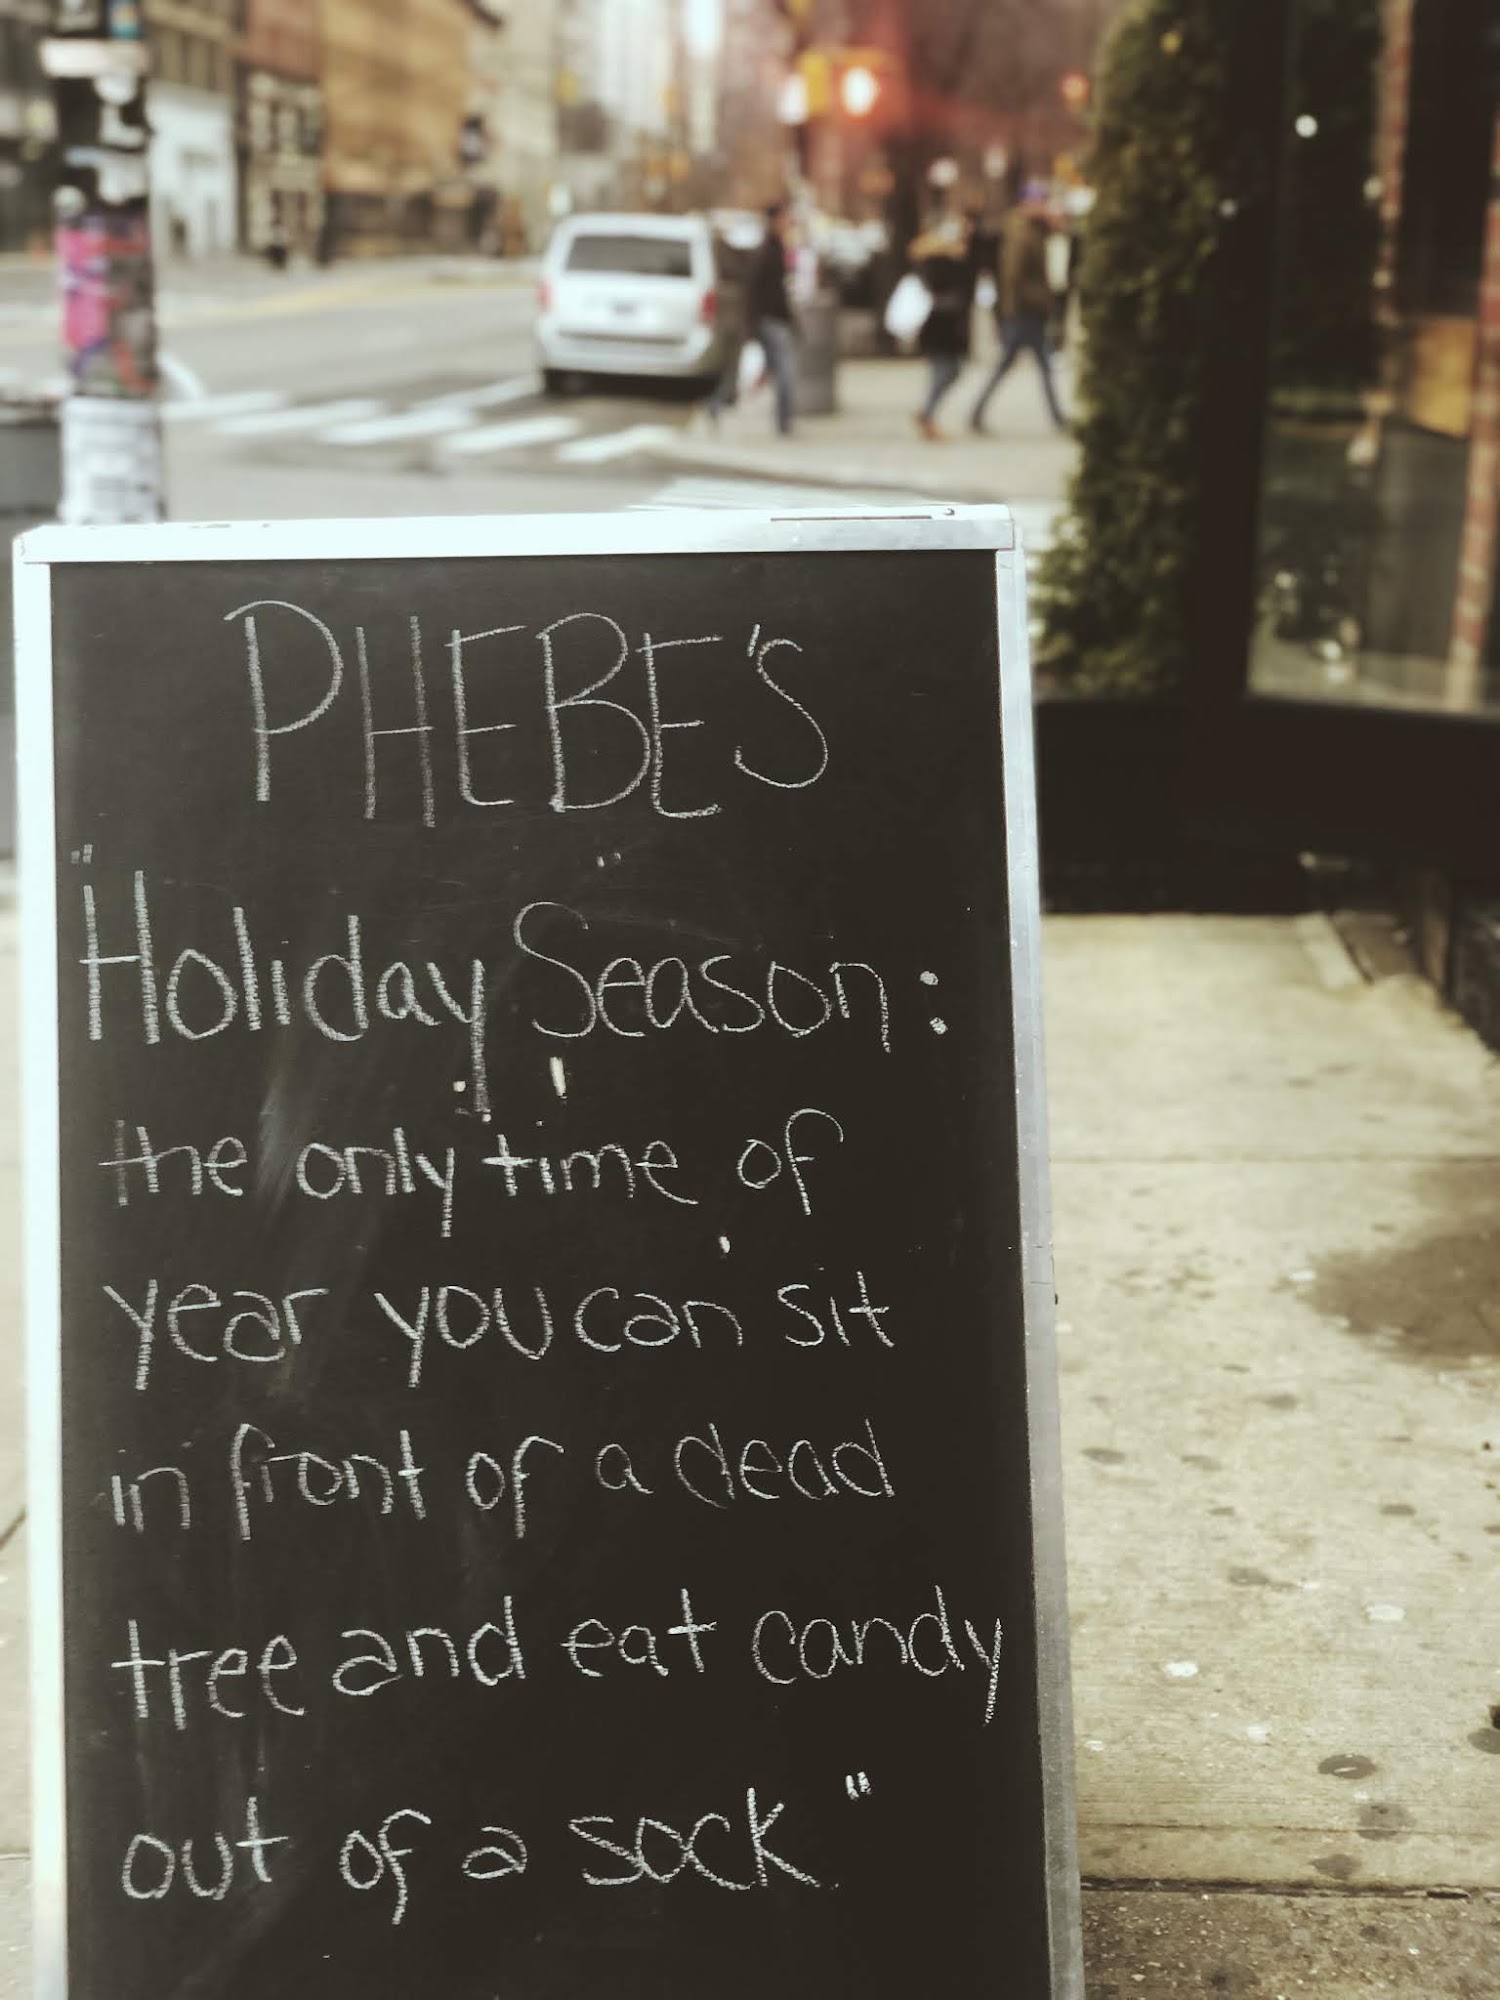 PHEBE'S
"Holiday Season:
the only time of
year you can sit
in front of a dead
tree and eat candy
out of a sock"